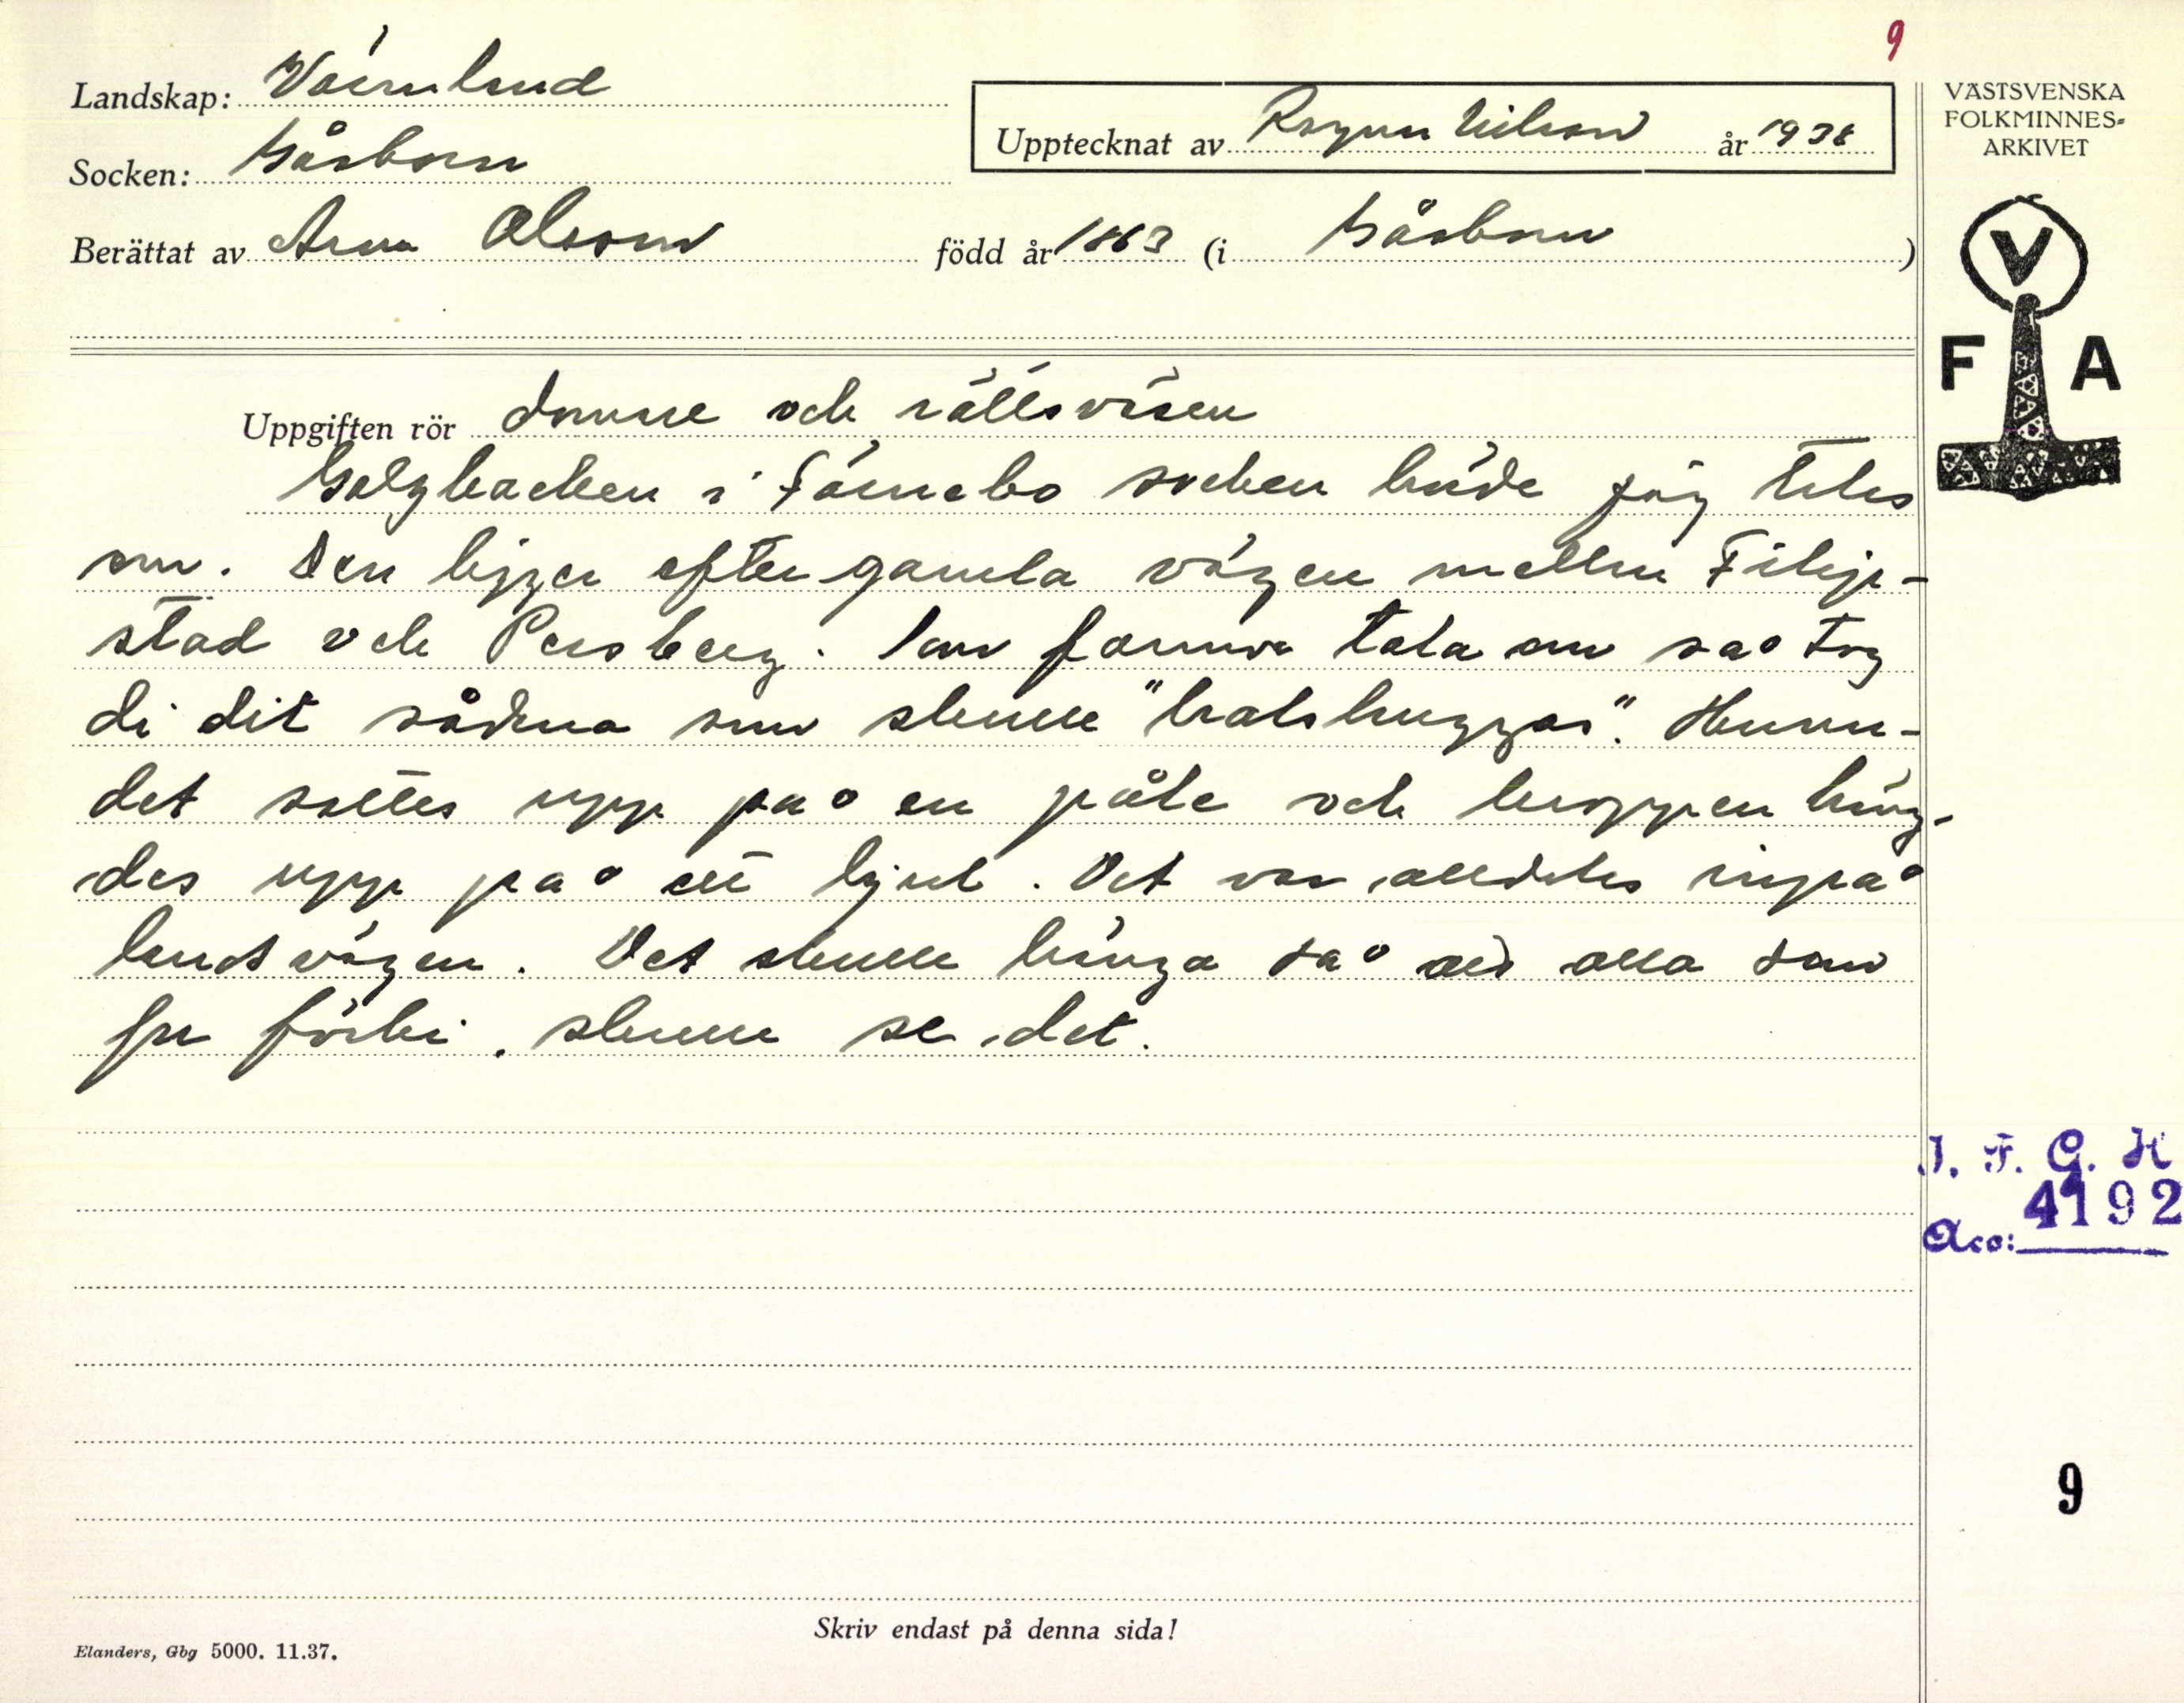 9
Landskap: Värmland
Socken: Gåsborn
Upptecknat av Ragnar Nilsson år 1938
Berättat av Anna Olsson född år 1863 (i Gåsborn)
VÄSTSVENSKA
FOLKMINNES-
ARKIVET
V
F A
Uppgiften rör domare och rättsväsen
Galgbacken i Färnebo socken hörde jag talas
om. Den ligger efter gamla vägen mellan Filip-
stad och Persberg. Som farmor tala om så tog
di dit sådna som skulle "halshuggas". Huvu-
det sattes upp på en påle och kroppen häng-
des upp på ett hjul. Det var alldeles inpå
landsvägen. Det skulle hänga så att alla som
for förbi, skulle se det.
I. F. G. H
4192
Acc:
9
Skriv endast på denna sida!
Elanders, Gbg 5000. 11.37.